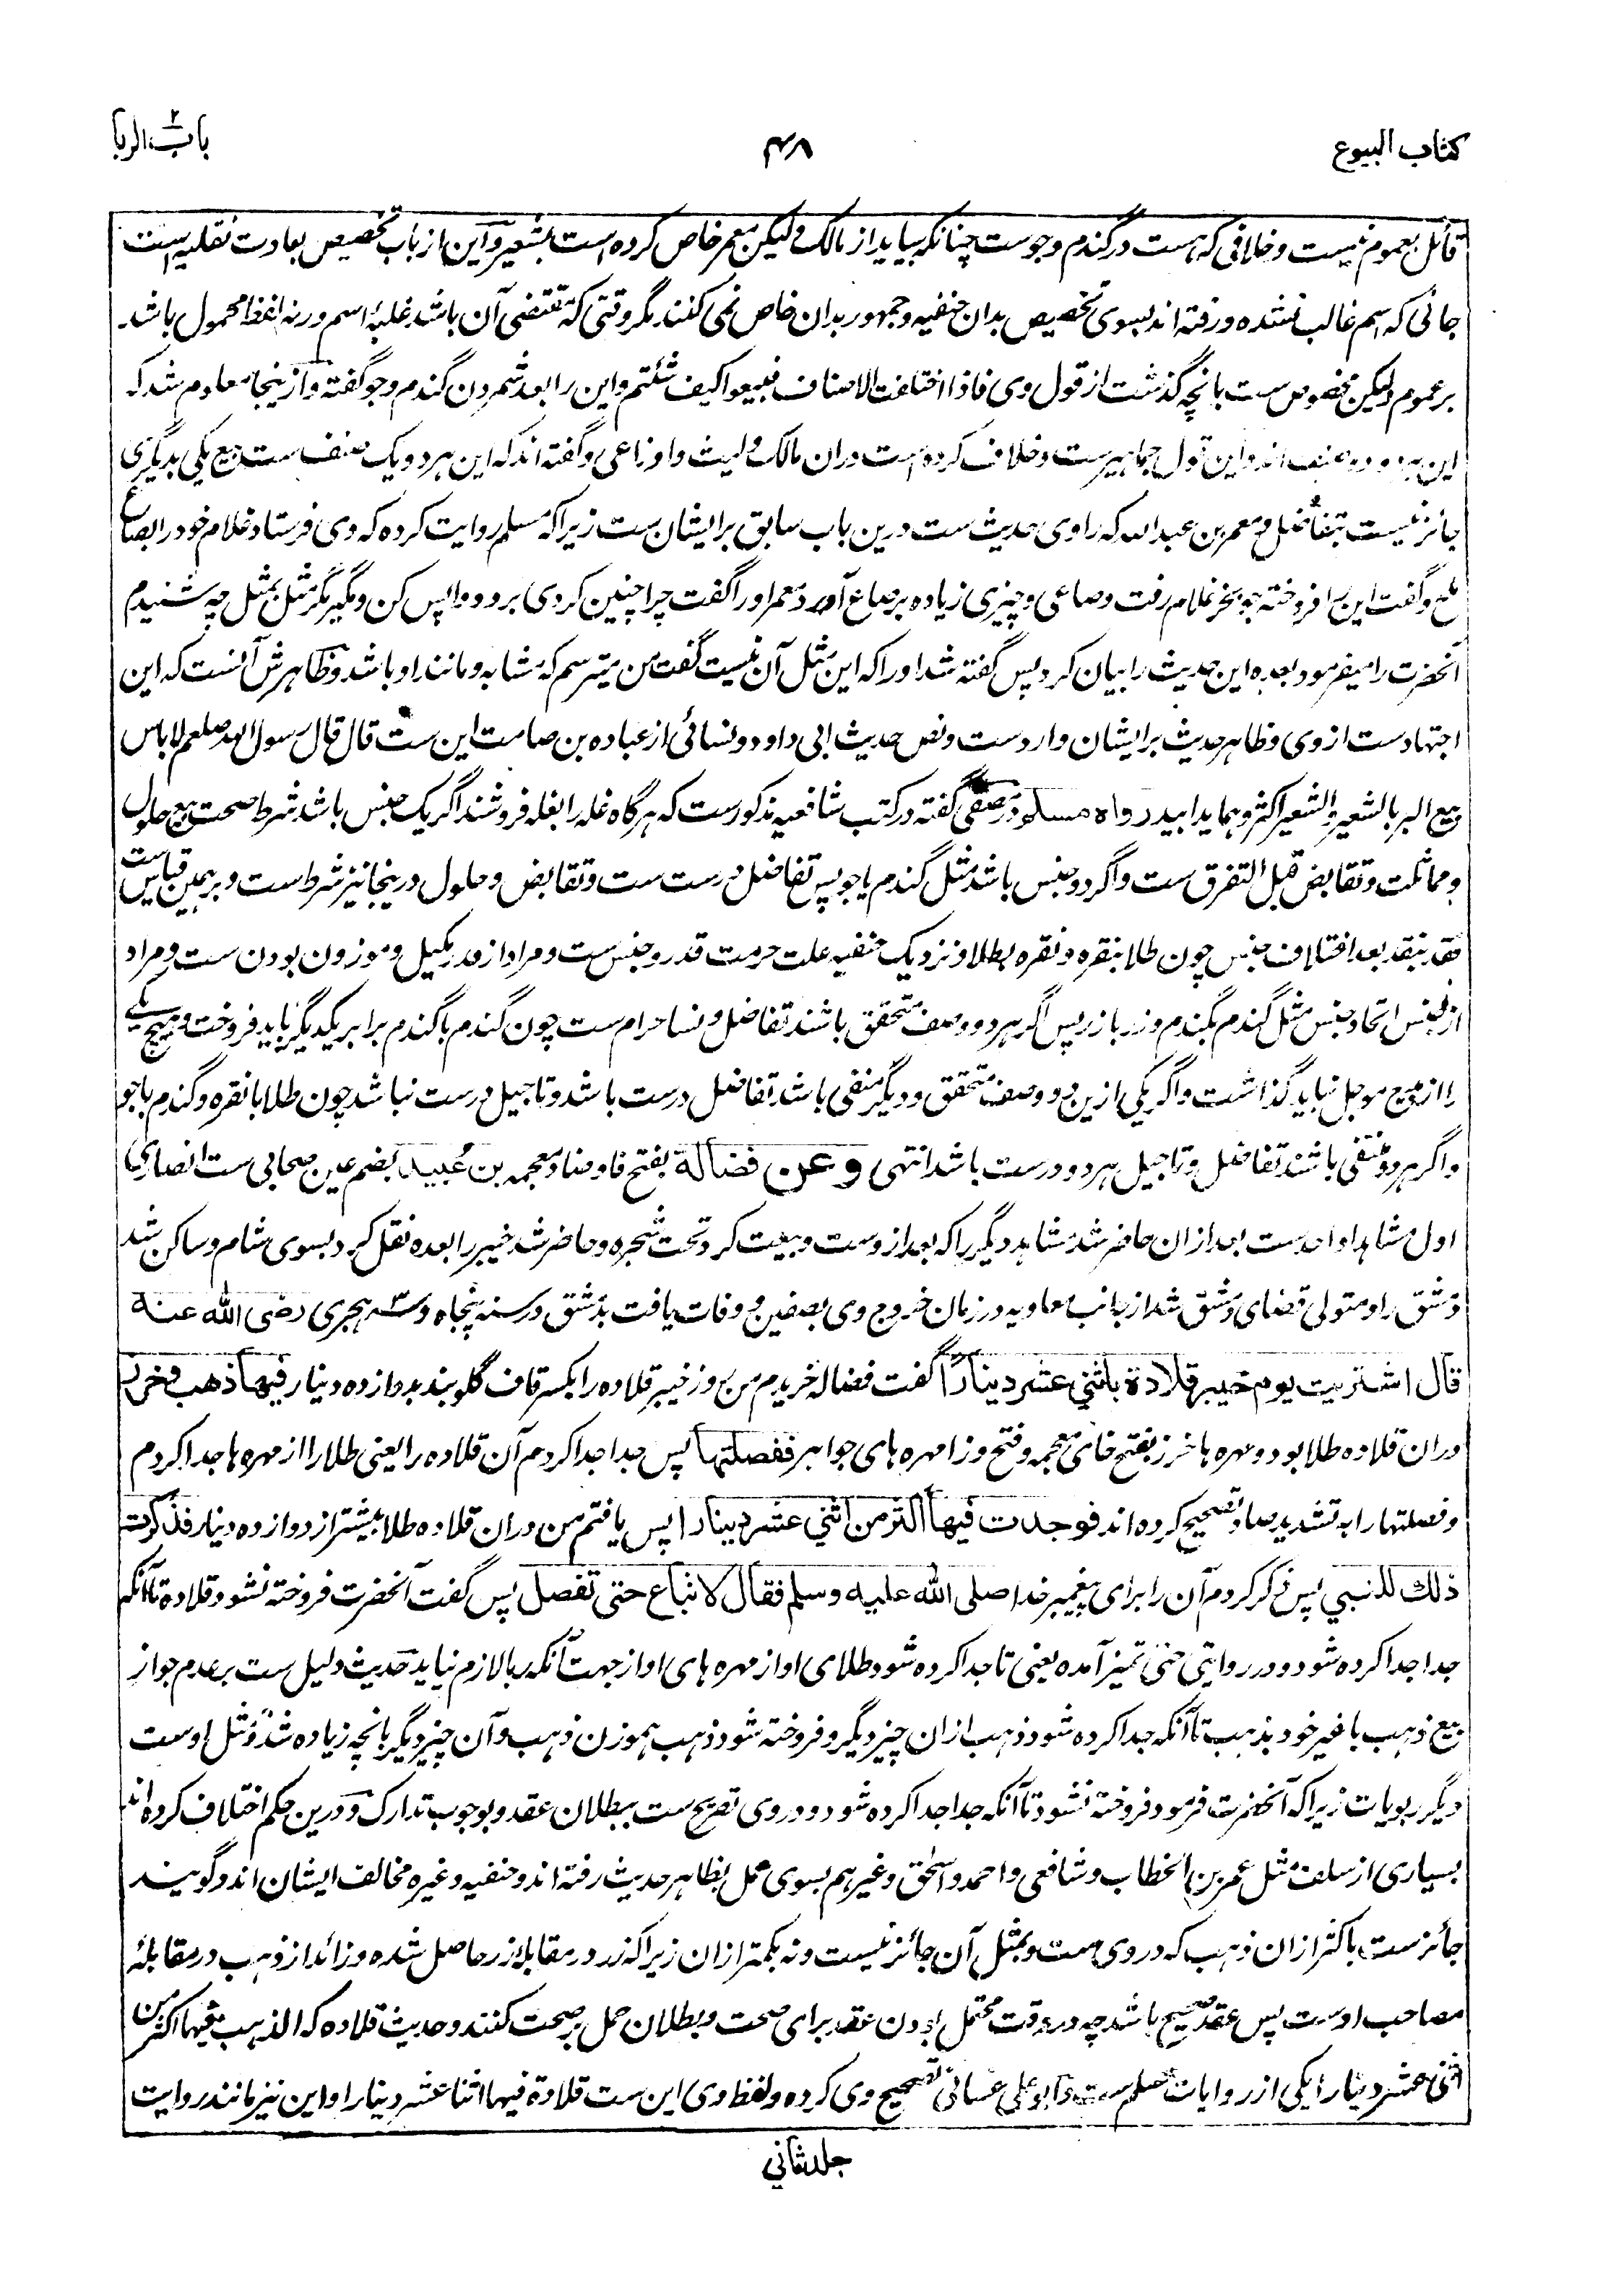 کتاب البیوع ۴۸ باب الربا
قائل بعموم نیست و خلافی که هست در گندم و جوست چنانکه بیاید از مالک و لیکن معمر خاص کرده است بشعیر و این از باب تخصیص بعادت نقلیه است
جائی که اسم غالب نشده و رفته اند بسوی تخصیص بدان حنفیه و جمهور بدان خاص نمی کنند مگر وقتی که مقتضی آن باشد غلبۀ اسم ورنه لفظ محمول باشد
بر عموم لیکن مخصوص ست بانچه گذشت از قول وی فاذا اختلفت الاصناف فبیعوا کیف شئتم و این را بعد شمردن گندم و جو گفته و ازینجا معلوم شد که
این هر دو دو صنف اند و این قول جماهیرست و خلاف کرده است دران مالک و لیث و اوزاعی و گفته اند که این هر دو یک صنف ست بیع یکی بدیگری
جائز نیست بتفاضل و معمر بن عبدالله که راوی حدیث ست درین باب سابق بر ایشان ست زیراکه مسلم روایت کرده که وی فرستاد غلام خود را بصاع
و گفت این را فروخته جو بخر غلام رفت و صاعی و چیزی زیاده بر صاع آورد معمر او را گفت چرا چنین کردی برو و واپس کن و مگیر مگر مثل بمثل چه شنیدم
آنحضرت را میفرمود بعده این حدیث را بیان کرد پس گفته شد او را که این مثل آن نیست گفت من میترسم که مشابه و مانند او باشد و ظاهرش آنست که این
اجتهادست از وی و ظاهر حدیث بر ایشان واردست و نص حدیث ابی داود و نسائی از عباده بن صامت این ست قال قال رسول الله صلعم لا باس
ببیع البر بالشعیر و الشعیر اکثر و هما یدا بید رواه مسلم و در مصفی گفته در کتب شافعیه مذکورست که هر گاه غله را بغله فروشند اگر یک جنس باشد شرط صحت بیع حلول
و مماثلت و تقابض قبل التفرق ست و اگر دو جنس باشد مثل گندم یا جو پس تفاضل درست ست و تقابض و حلول درینجا نیز شرط است و برهمین قیاس ست
نقد بنقد بعد اختلاف جنس چون طلا بنقره و نقره بطلا و نزدیک حنفیه علت حرمت قدر و جنس ست و مراد از قدر مکیل و موزون بودن ست و مراد
از جنس اتحاد جنس مثل گندم بگندم و زر بازر پس اگر هر دو وصف متحقق باشند تفاضل و نسا حرام ست چون گندم با گندم برابر یکدیگر باید فروخت و هیچ یکی
را از هیچ موجل نباید گذاشت و اگر یکی ازین دو وصف متحقق و دیگر منفی باشد تفاضل درست باشد و تاجیل درست نباشد چون طلا با نقره و گندم با جو
و اگر هر دو منتفی باشند تفاضل و تاجیل هر دو درست باشد انتهی وعن فضالة بفتح فا و ضاد معجمه بن عبید بضم عین صحابی ست انصاری
اول مشاهد او احد ست بعد ازان حاضر شد مشاهد دیگر را که بعد از وست و بیعت کرد تحت شجره و حاضر شد خیبر را بعده نقل کرد بسوی شام و ساکن شد
دمشق را و متولی قضای دمشق شد از جانب معاویه در زمان خروج وی بصفین و وفات یافت بدمشق در سنه پنجاه و سه هجری رضی الله عنه
قال اشتریت یوم خیبر قلادة باثني عشر دینارا گفت فضاله خریدم من بروز خیبر قلاده را بکسر قاف گلوبند بدوازده دینار فیها ذهب و خرز
دران قلاده طلا بود و مهره ها خرز بفتح خای معجمه و فتح و زا مهره های جواهر ففصلتها پس جدا جدا کردم آن قلاده را یعنی طلا را از مهره ها جدا کردم
و فصلتها را به تشدید صاد تصحیح کرده اند فوجدت فیها أکثر من اثني عشر دینارا پس یافتم من دران قلاده طلا بیشتر از دوازده دینار فذکرت
ذلك للنبي پس ذکر کردم آن را برای پیغمبر خدا صلى الله علیه وسلم فقال لا تباع حتی تفصل پس گفت آنحضرت فروخته نشود قلاده تا آنکه
جدا جدا کرده شود و در روایتی حتی تمیز آمده یعنی تا جدا کرده شود طلای او از مهره های او از جهت آنکه ربا لازم نیاید حدیث دلیل ست بر عدم جواز
بیع ذهب با غیر خود بذهب تا آنکه جدا کرده شود ذهب ازان چیز دیگر و فروخته شود ذهب بهموزن ذهب و آن چیز دیگر بانچه زیاده شد و مثل اوست
دیگر ربویات زیراکه آنحضرت فرمود فروخته نشود تا آنکه جدا جدا کرده شود و در وی تصریح ست ببطلان عقد و بوجوب تدارک و درین حکم اختلاف کرده اند
بسیاری از سلف مثل عمر بن الخطاب و شافعی و احمد و اسحق و غیرهم بسوی عمل بظاهر حدیث رفته اند و حنفیه و غیره مخالف ایشان اند و گویند
جائزست باکثر ازان ذهب که در وی ست و بمثل آن جائز نیست و نه بکمتر ازان زیراکه زر در مقابلۀ زر حاصل شده و زائد از ذهب در مقابلۀ
مصاحب اوست پس عقد صحیح باشد چه در وقت محتمل بودن عقد برای صحت و بطلان حمل بر صحت کنند و حدیث قلاده که الذهب فیها اکثر من
اثنی عشر دینارا یکی از روایات مسلم ست و ابو علی غسانی تصحیح وی کرده و لفظ وی این ست قلادة فیها اثنا عشر دینارا و این نیز مانند روایت
جلد ثانی